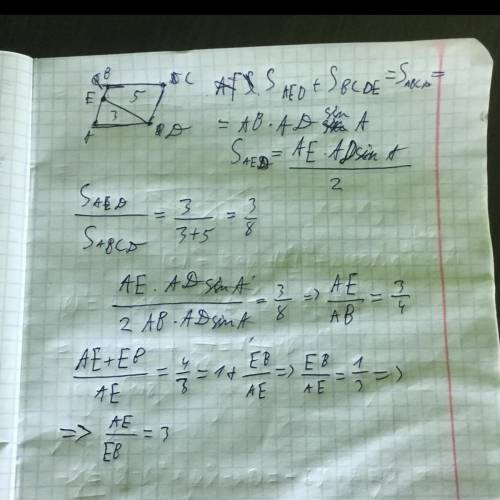 B C
E 5
3
A D
S_AED + S_BCDE = S_ABCD =
= AB · AD sin A
S_AED = (AE · AD sin A)/2
S_AED/S_ABCD = 3/(3+5) = 3/8
(AE · AD sin A)/(2 AB · AD sin A) = 3/8 => AE/AB = 3/4
(AE+EB)/AE = 4/3 = 1 + EB/AE => EB/AE = 1/3 =>
=> AE/EB = 3